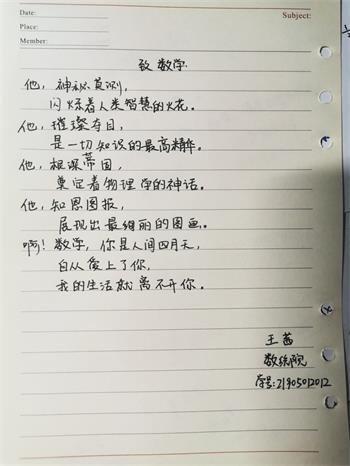 Date:
Subject:
Place:
Member:
致 数学
他，神秘莫测，
闪烁着人类智慧的火花。
他，璀璨夺目，
是一切知识的最高精华。
他，根深蒂固，
奠定着物理学的神话。
他，知恩图报，
展现出最绚丽的图画。
啊！数学，你是人间四月天，
自从爱上了你，
我的生活就离不开你。
王茜
数统院
学号：21905012012